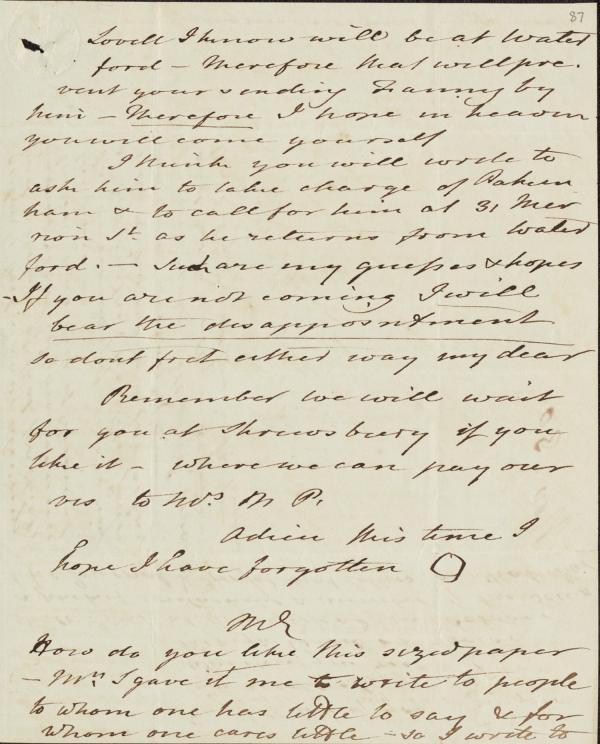 87
Lovell I know will be at Water
ford – therefore that will pre-
vent your sending Fanny by
him – Therefore I hope in heaven
you will come yourself
I think you will write to
ask him to take charge of Paken
ham & to call for him at 31 Mer
rion St. as he returns from Water
ford. – Such are my guesses & hopes
– If you are not coming I will
bear the disappointment
so dont fret either way my dear
Remember we will wait
for you at Shrewsbury if you
like it – where we can pay our
vis to Mrs M P.
Adieu this time I
hope I have forgotten
ME
How do you like this sized paper
– Mrs S gave it me to write to people
to whom one has little to say & for
whom one cares little – so I write to